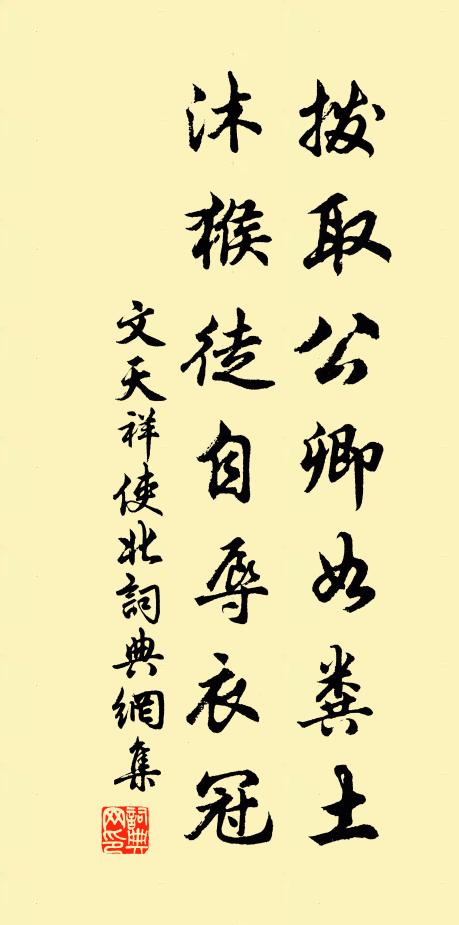 拨取公卿如粪土
沐猴徒自辱衣冠
文天祥使北詞典網集
詞典網印